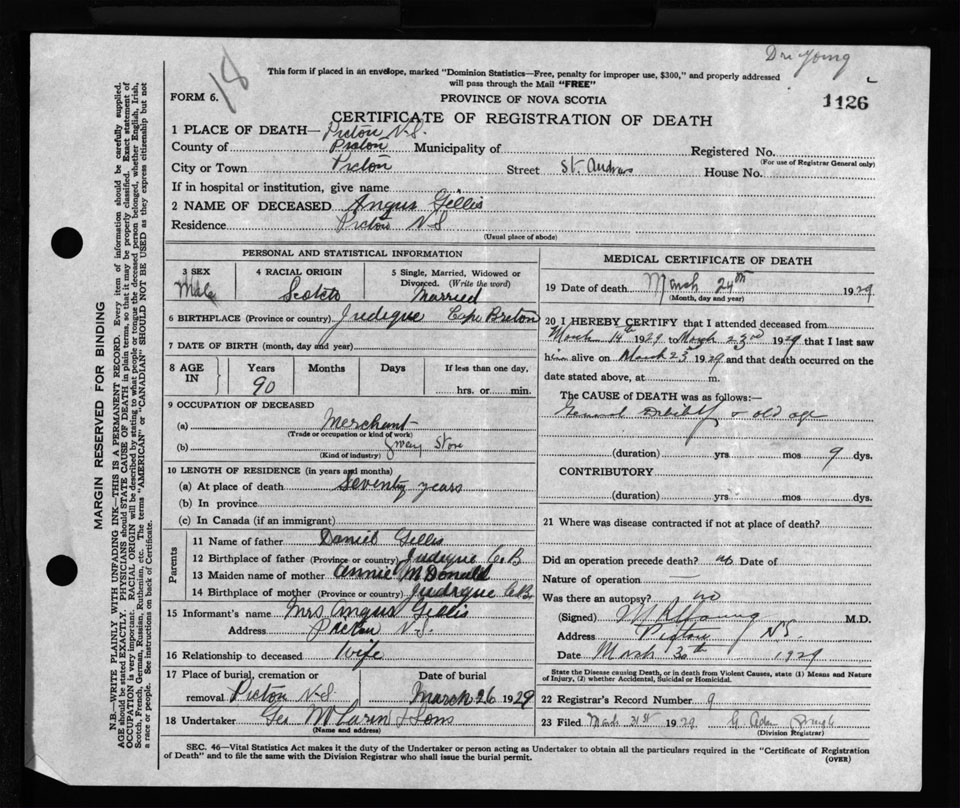 Dr. Young
18
This form if placed in an envelope, marked "Dominion Statistics—Free, penalty for improper use, $300," and properly addressed
will pass through the Mail "FREE"
1126
FORM 6.
PROVINCE OF NOVA SCOTIA
CERTIFICATE OF REGISTRATION OF DEATH
1 PLACE OF DEATH— Pictou N.S.
County of Pictou Municipality of Registered No.
(For use of Registrar General only)
City or Town Pictou Street St. Andrews House No.
If in hospital or institution, give name
2 NAME OF DECEASED Angus Gillis
Residence Pictou N S
(Usual place of abode)
PERSONAL AND STATISTICAL INFORMATION
3 SEX Male
4 RACIAL ORIGIN Scotch
5 Single, Married, Widowed or
Divorced. (Write the word)
Married
6 BIRTHPLACE (Province or country) Judique Cape Breton
7 DATE OF BIRTH (month, day and year)
8 AGE IN Years 90 Months Days If less than one day, hrs. or min.
9 OCCUPATION OF DECEASED
(a) Merchant
(Trade or occupation or kind of work)
(b) Store
(Kind of industry)
10 LENGTH OF RESIDENCE (in years and months)
(a) At place of death Seventy years
(b) In province
(c) In Canada (if an immigrant)
Parents
11 Name of father Daniel Gillis
12 Birthplace of father (Province or country) Judique C.B
13 Maiden name of mother Annie McDonald
14 Birthplace of mother (Province or country) Judique C.B.
15 Informant's name Mrs Angus Gillis
Address Pictou N.S.
16 Relationship to deceased Wife
17 Place of burial, cremation or
removal Pictou N.S
Date of burial
March 26 1929
18 Undertaker Geo McLaren & Sons
(Name and address)
MEDICAL CERTIFICATE OF DEATH
19 Date of death March 24th 1929
(Month, day and year)
20 I HEREBY CERTIFY that I attended deceased from
March 14th 1929 to March 23rd 1929 that I last saw
him alive on March 23 1929 and that death occurred on the
date stated above, at m.
The CAUSE of DEATH was as follows:—
General Debility & old age
(duration) yrs mos 9 dys.
CONTRIBUTORY
(duration) yrs mos dys.
21 Where was disease contracted if not at place of death?
Did an operation precede death? no Date of
Nature of operation —
Was there an autopsy? no
(Signed) Young M.D.
Address Pictou N S.
Date March 30th 1929
State the Disease causing Death, or in death from Violent Causes, state (1) Means and Nature
of Injury, (2) whether Accidental, Suicidal or Homicidal.
22 Registrar's Record Number 9
23 Filed March 31st 1929
(Division Registrar)
SEC. 46—Vital Statistics Act makes it the duty of the Undertaker or person acting as Undertaker to obtain all the particulars required in the "Certificate of Registration
of Death" and to file the same with the Division Registrar who shall issue the burial permit.
(OVER)
MARGIN RESERVED FOR BINDING
N.B.—WRITE PLAINLY WITH UNFADING INK—THIS IS A PERMANENT RECORD. Every item of information should be carefully supplied.
AGE should be stated EXACTLY. PHYSICIANS should STATE CAUSE OF DEATH in plain terms, so that it may be properly classified. Exact statement of
OCCUPATION is very important. RACIAL ORIGIN will be described by stating to what people or tongue the deceased person belonged, whether English, Irish,
Scotch, French, German, Russian, Ruthenian, etc. The terms "AMERICAN" or "CANADIAN" SHOULD NOT BE USED as they express citizenship but not
a race or people. See instructions on back of Certificate.